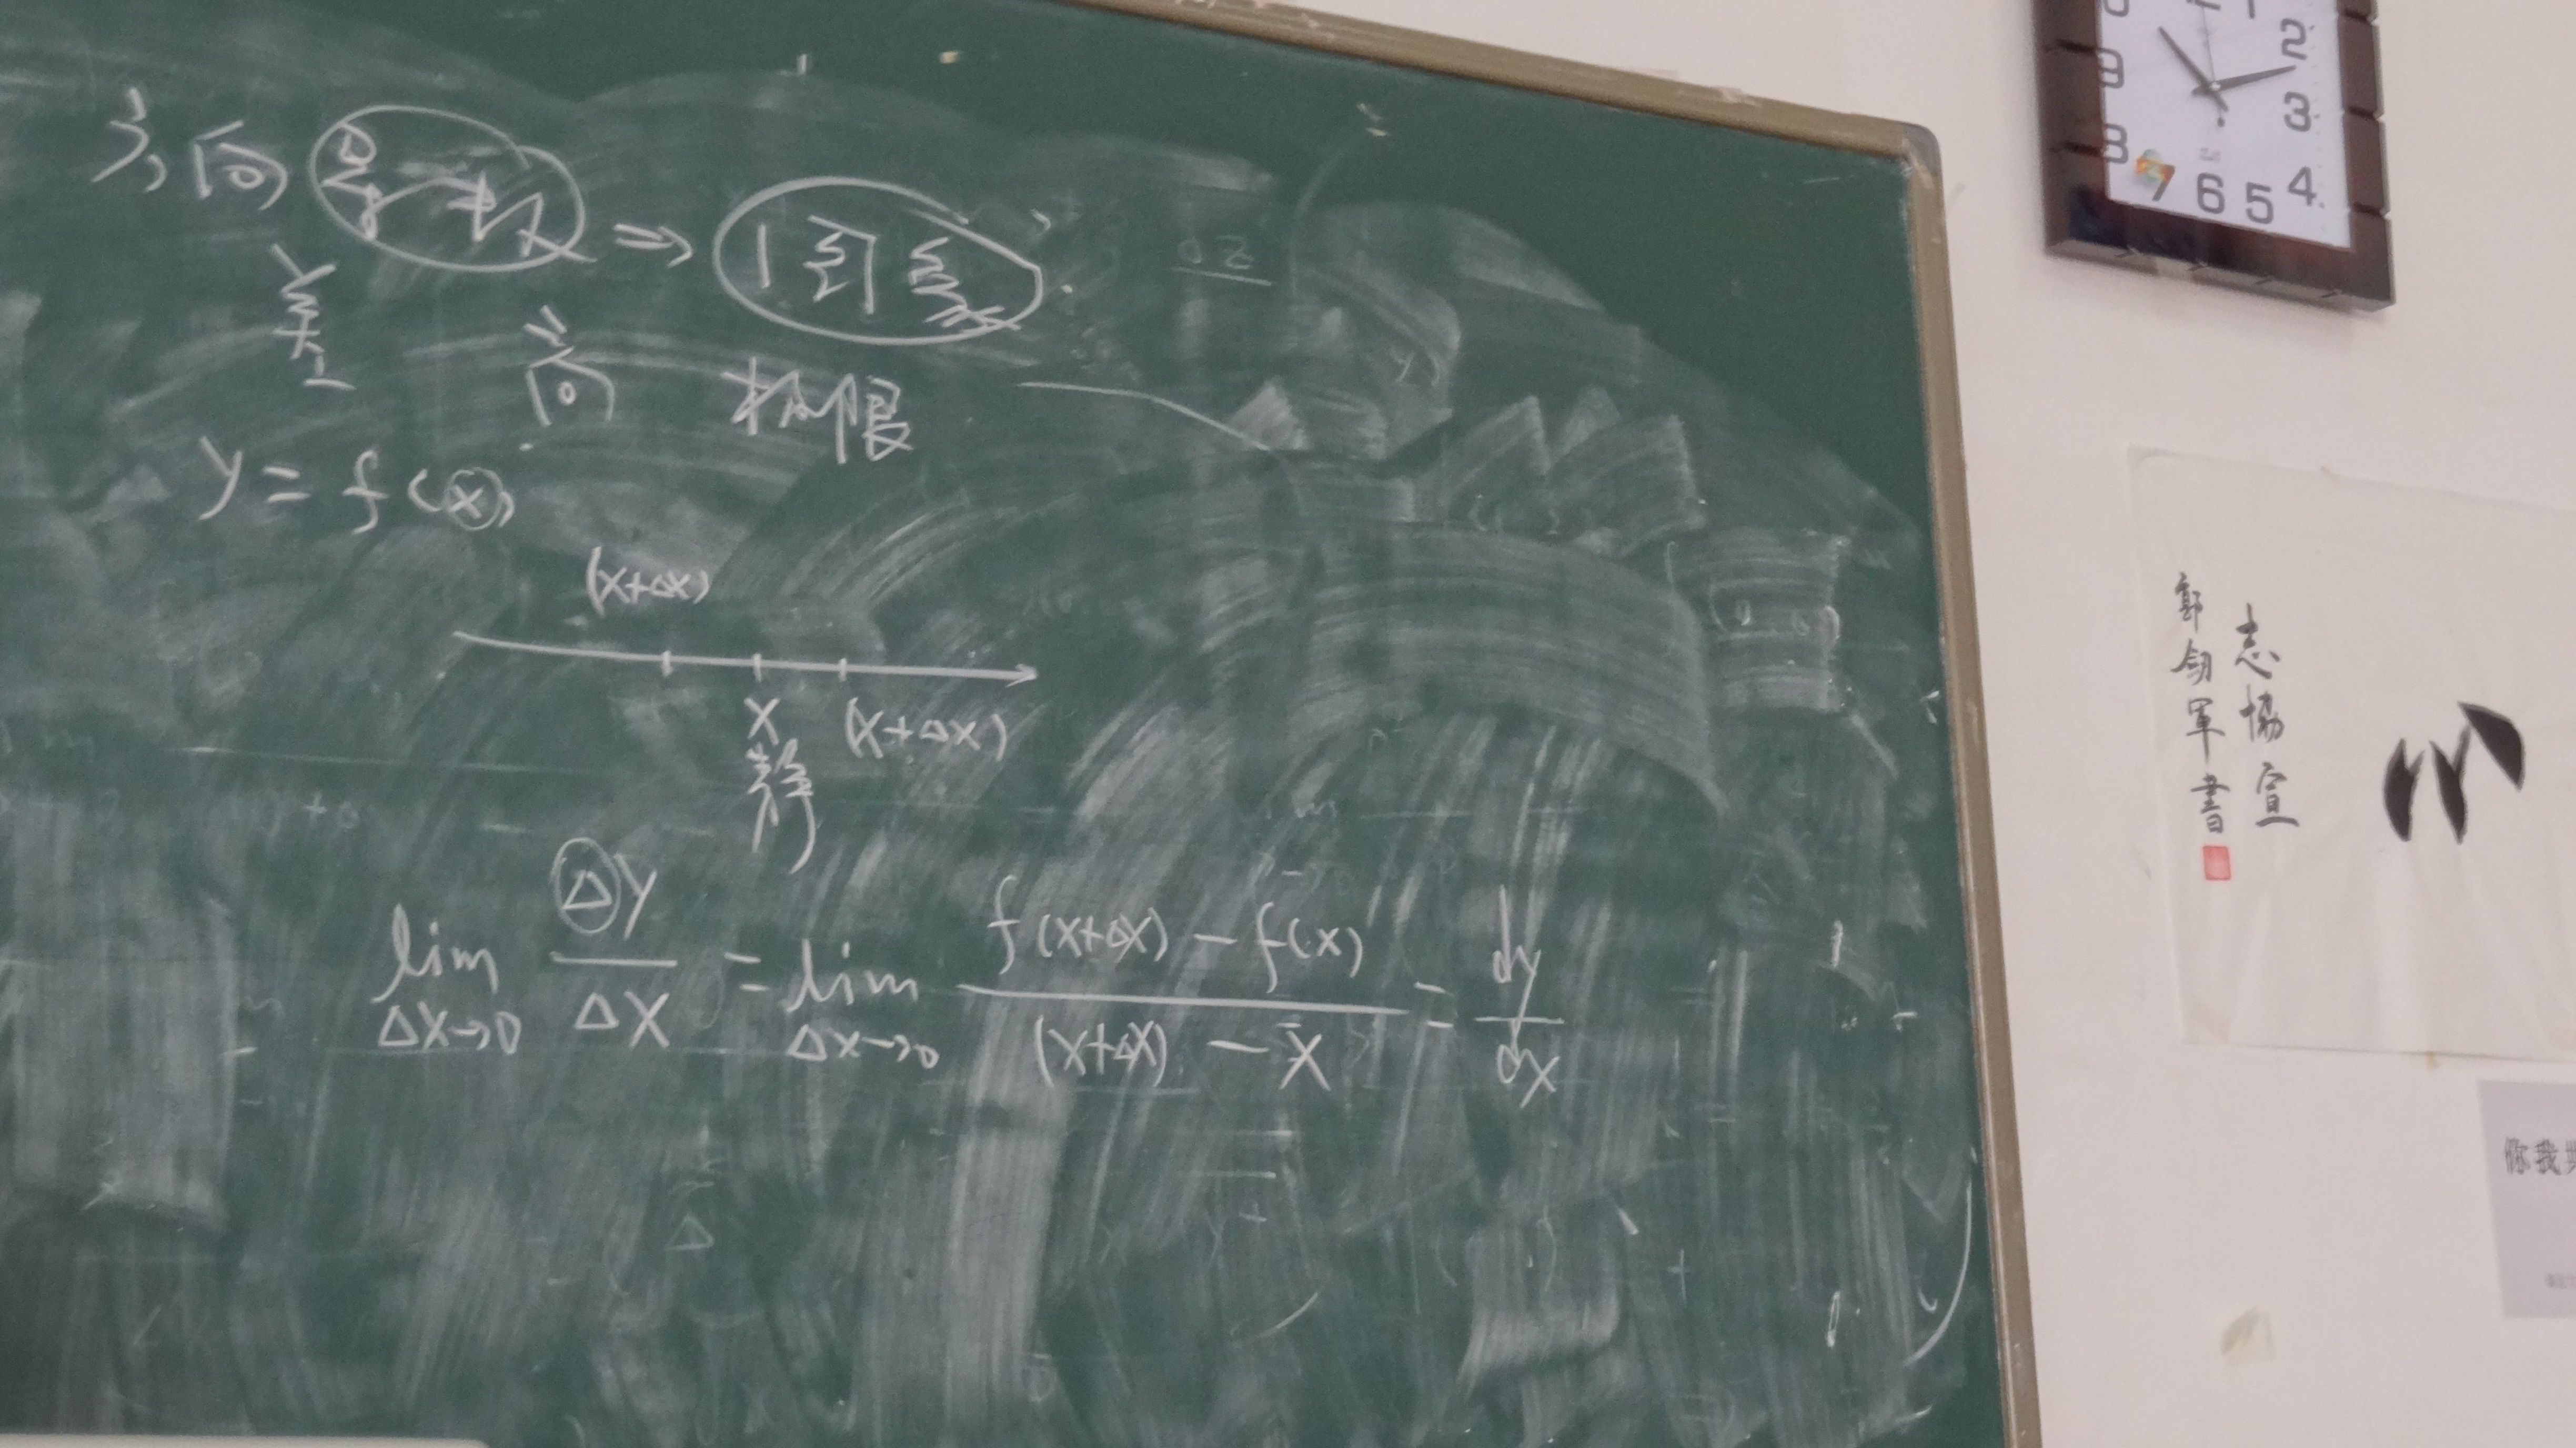 方向导数 ⇒ 偏导数
差 商 极限
y = f(x)
(x+Δx)
x (x+Δx)
静
lim Δx→0 Δy/Δx = lim Δx→0 (f(x+Δx) − f(x))/((x+Δx) − x) = dy/dx
1
2
9 3
8 4
7 6 5
志協宣
軍書
你我